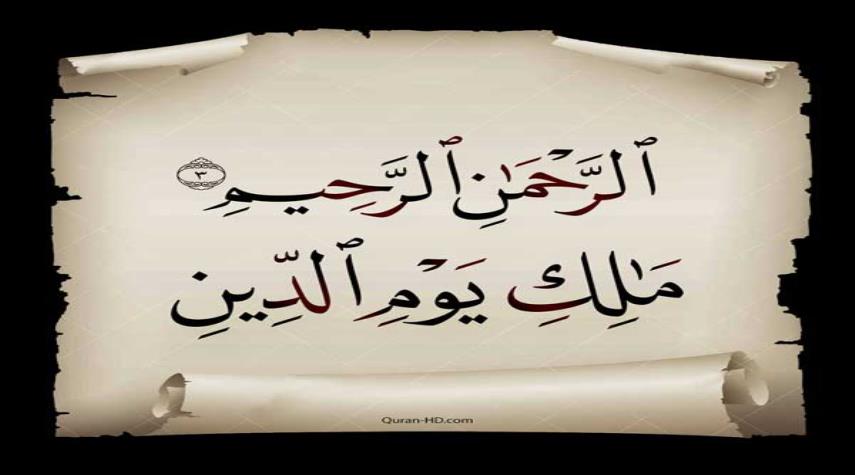 ٱلرَّحْمَٰنِ ٱلرَّحِيمِ ٣
مَٰلِكِ يَوْمِ ٱلدِّينِ
Quran-HD.com